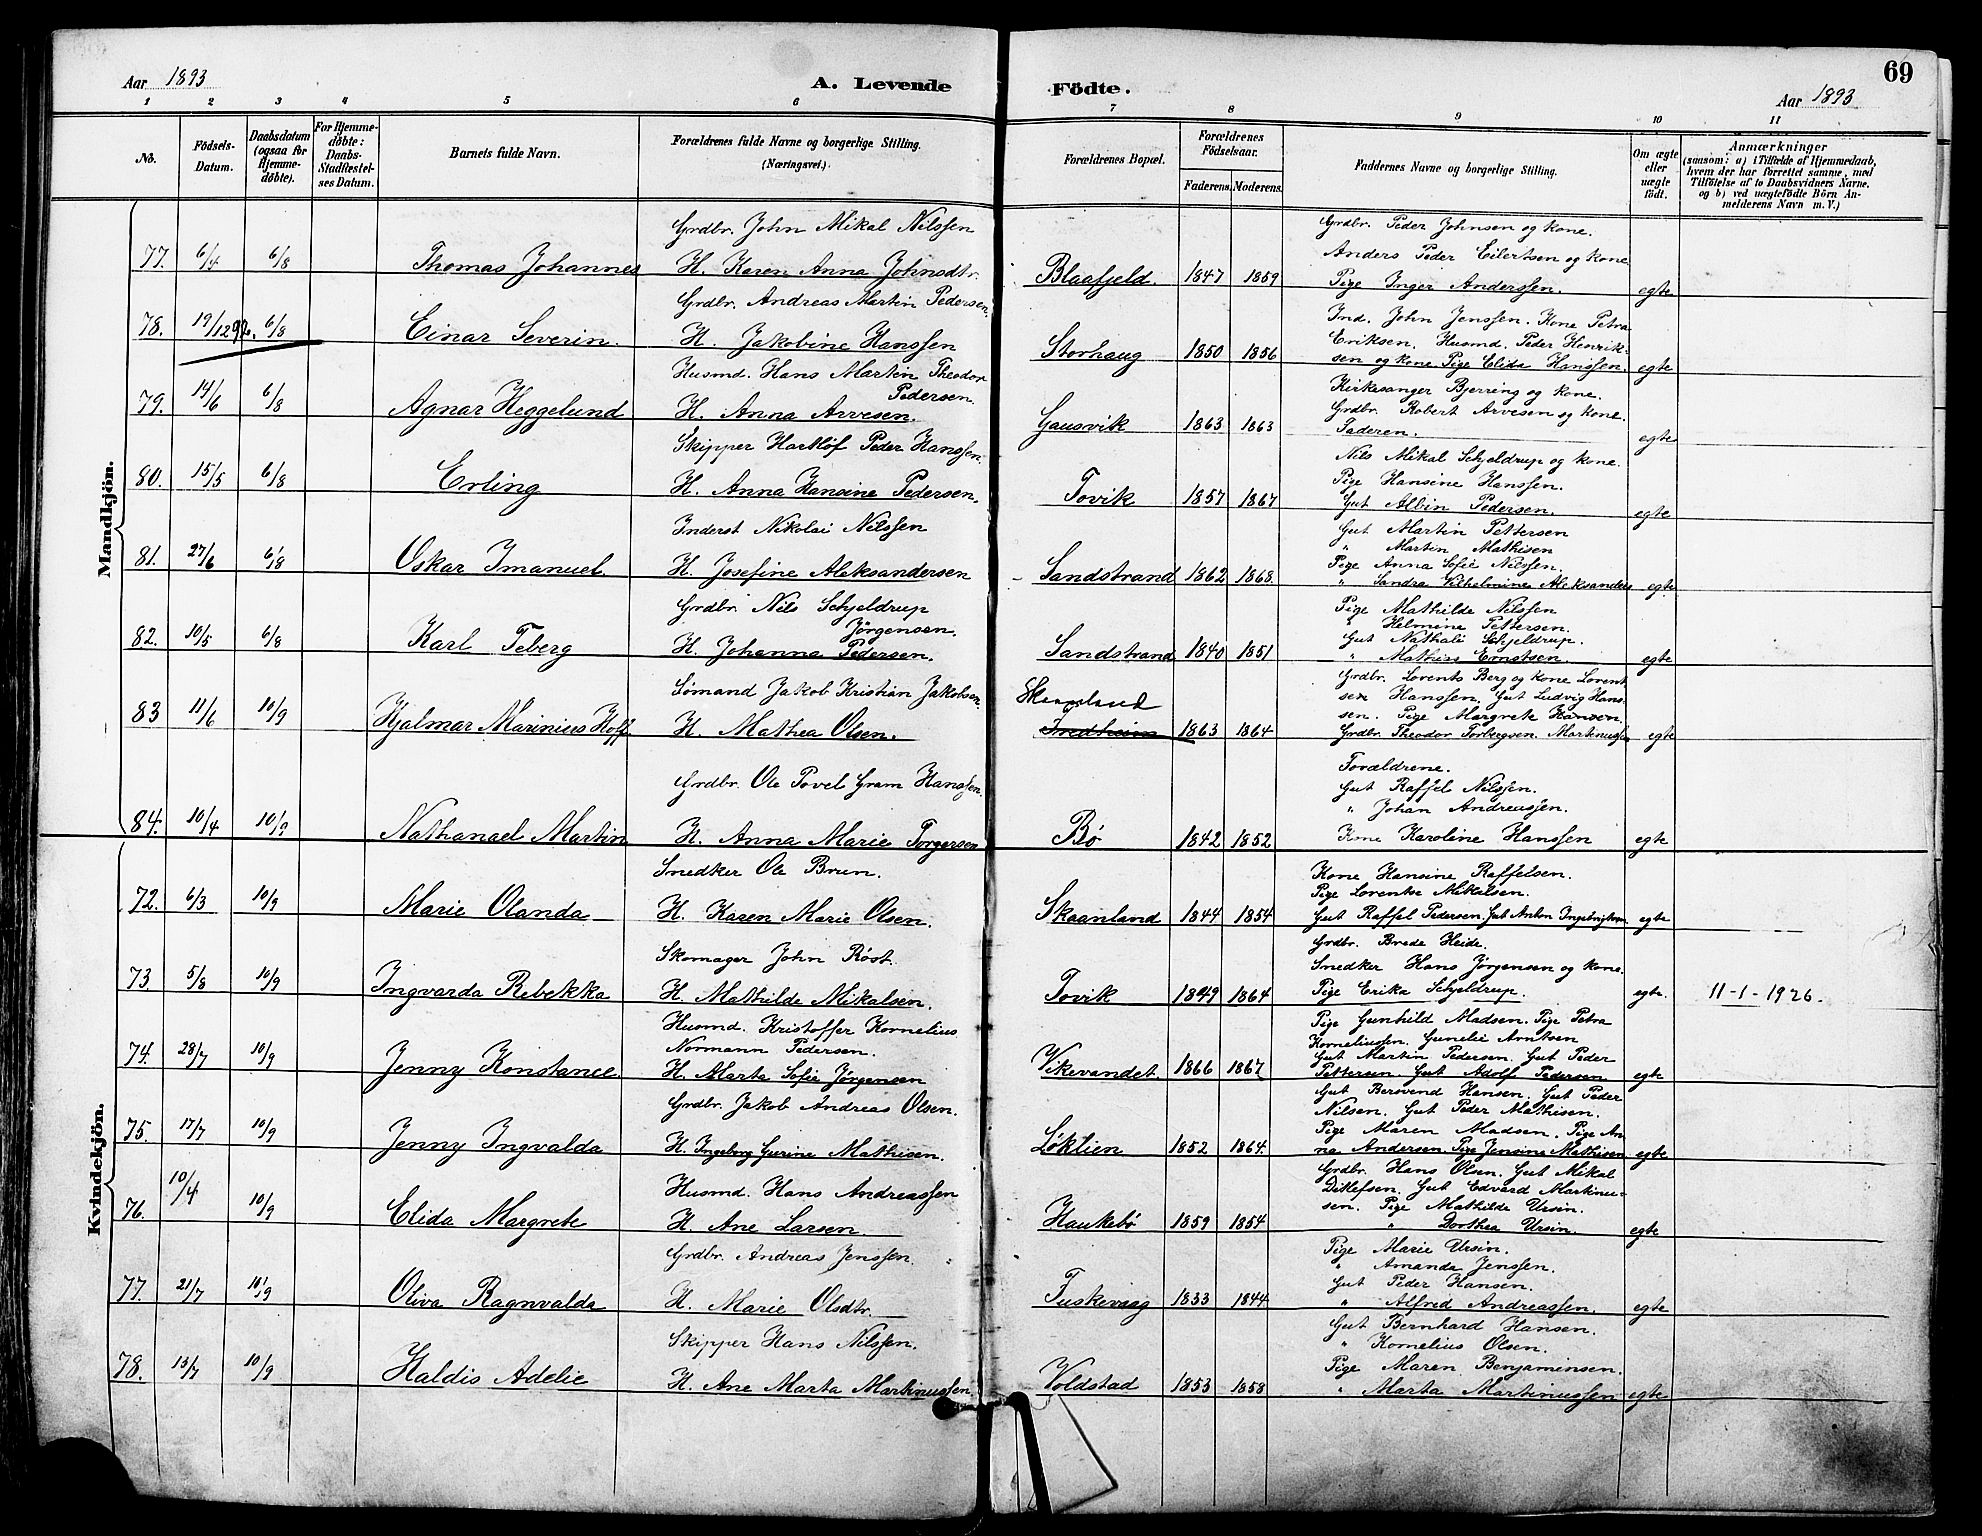 69
Aar 1893
A. Levende Födte.
Aar 1893
1 2 3 4 5 6 7 8 9 10 11
No.
Födsels-Datum.
Daabsdatum (ogsaa for Hjemme-døbte).
For Hjemme-døbte: Daabs-Stadfæstel-ses Datum.
Barnets fulde Navn.
Forældrenes fulde Navne og borgerlige Stilling. (Næringsvei.)
Forældrenes Bopæl.
Forældrenes Födselsaar.
Faderens. Moderens.
Faddernes Navne og borgerlige Stilling.
Om ægte eller uægte födt.
Anmærkninger
(saasom: a) i Tilfælde af Hjemmedaab, hvem der har forrettet samme, med Tilføielse af to Daabsvidners Navne. og b) ved uægtefödte Börn An-melderens Navn m. V.)
Mandkjön.
Grdbr. John Mikal Nilssen
Grdbr. Peder Johnsen og kone.
Anders Peder Eilertsen og kone
77. 6/4 6/8 Thomas Johannes H. Karen Anna Johnsdtr. Blaafjeld. 1847 1859 Pige Inger Anderssen. egte
Grdbr. Andreas Martin Pedersen.
Ind. John Jenssen. Kone Petra
Eriksen. Husmd. Peder Henrik-
78. 19/12 92. 6/8 Einar Severin. H. Jakobine Hanssen Storhaug 1850 1856 sen og kone. Pige Elida Hanssen. egte
Husmd. Hans Martin Theodor Pedersen.
Kirkesanger Bjerring og kone.
Grdbr. Robert Arvesen og kone.
79. 14/6 6/8 Agnar Heggelund H. Anna Arvesen. Gausvik 1863 1863 Faderen. egte
Skipper Hartlof Peder Hanssen.
Nils Mikal Schjeldrup og kone.
Pige Hansine Hanssen.
80. 15/5 6/8 Erling H. Anna Hansine Pedersen. Tovik 1857 1867 Gut Albin Pedersen. egte
Inderst Nikolai Nilssen
Gut Martin Pettersen
" Martin Mathisen
Pige Anna Sofie Nilssen.
81. 27/6 6/8 Oskar Imanuel. H. Josefine Aleksandersen Sandstrand 1862 1868. " Sandra Vilhelmine Aleksanders egte
Grdbr. Nils Schjeldrup Jörgensen.
Pige Mathilde Nilssen
" Helmine Pettersen.
Gut Nathali Schjeldrup.
82. 10/5 6/8 Karl Teberg H. Johanna Pedersen. Sandstrand 1840 1851 " Mathias Ernstsen. egte
Sømand Jakob Kristian Jakobsen.
Grdbr. Lorents Berg og kone Lorent
sen Hanssen, Gut Ludvig Hans-
sen. Pige Margrete Hansen.
83 11/6 10/9 Hjalmar Marinius Hoff. H. Mathea Olsen. Skaanland 1863 1864 Grdbr. Theodor Torbergsen. Martinussen egte
Grdbr. Ole Povel Gram Hanssen.
Forældrene.
Gut Raffel Nilssen.
" Johan Andreassen.
84. 10/4 10/9 Nathanael Martin H. Anna Marie Torgersen Bö 1842 1852 Kone Karoline Hanssen egte
Kvindekjön.
Snedker Ole Brun.
Kone Hansine Raffelsen.
Pige Lorentse Mikalsen.
72. 6/3 10/9 Marie Olanda H. Karen Marie Olsen. Skaanland 1844 1854 Gut Raffel Pedersen. Gut Anton Ingebrigtsen egte
Skomager John Röst.
Grdbr. Brede Heide.
Snedker Hans Jörgensen og kone.
73 5/8 10/9 Ingvarda Rebekka H. Mathilde Mikalsen. Tovik 1849 1864 Pige Erika Schjeldrup. egte. 11-1-1926.
Husmd. Kristoffer Kornelius
Normann Pedersen.
Pige Gunhild Madsen. Pige Petra
Korneliussen. Gunelie Arntsen
Gut Martin Pedersen. Gut Peder
74. 28/7 10/9 Jenny Konstance. H. Marta Sofie Jörgensen Vikevandet. 1866 1867 Pettersen. Gut Adolf Pedersen egte
Grdbr. Jakob Andreas Olsen.
Gut Berovend Hansen. Gut Peder
Nilsen. Gut Peder Mathisen.
Pige Maren Madsen. Pige An
75. 17/7 10/9 Jenny Ingvalda H. Ingeborg Gurine Mathisen. Løktien 1852 1864. na Andersen Pige Jensine Mathisen egte
Husmd. Hans Andreassen
Grdbr. Hans Olsen. Gut Mikal
Ditlefsen. Gut Edvard Martinu-
sen. Pige Mathilde Ursin.
76. 10/4 10/9 Elida Margrete H. Ane Larsen. Haukebö 1859 1854 " Dorthea Ursin. egte
Grdbr. Andreas Jenssen.
Pige Marie Ursin.
" Amanda Jenssen.
Gut Peder Hansen.
77. 21/7 10/9 Oliva Ragnvalda H. Marie Olsdtr. Fuskevaag 1833 1844 " Alfred Andreassen. egte
Skipper Hans Nilssen.
Gut Bernhard Hansen.
" Kornelius Olsen.
Pige Maren Benjaminsen.
78. 13/7 10/9 Haldis Adelie H. Ane Marta Martinussen Voldstad 1853 1858 " Marta Martinussen egte